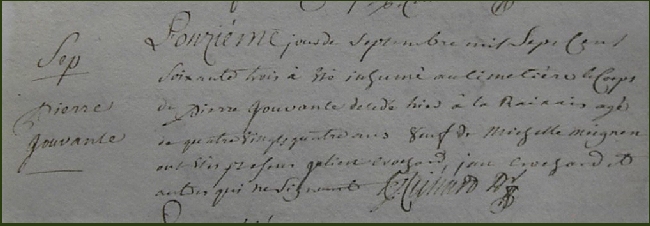 Sep
Pierre
Jouvante
L'onziéme jour de Septembre mil Sept Cent
Soixante trois à été inhumé au cimetiére le Corps
de Pierre Jouvante decedé hier à la agé
de quatre vingt quatre ans Veuf de Michelle mugnon
ont eté presens Crochard jean Crochard et
autres qui ne signent